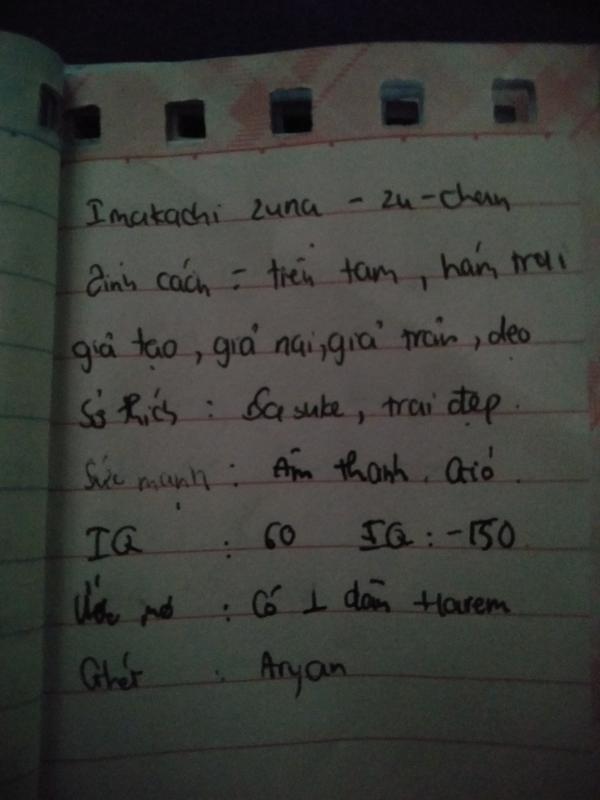 Imakachi zuna - zu-chan
Tính cách = tiện tam, hám trai
giả tạo, giả nai, giả trân, dẹo
Sở thích : Sasuke, trai đẹp.
Sức mạnh : Âm thanh. Gió.
IQ : 60 IQ : -150
Ước mơ : Có 1 dàn Harem
Ghét : Aryan